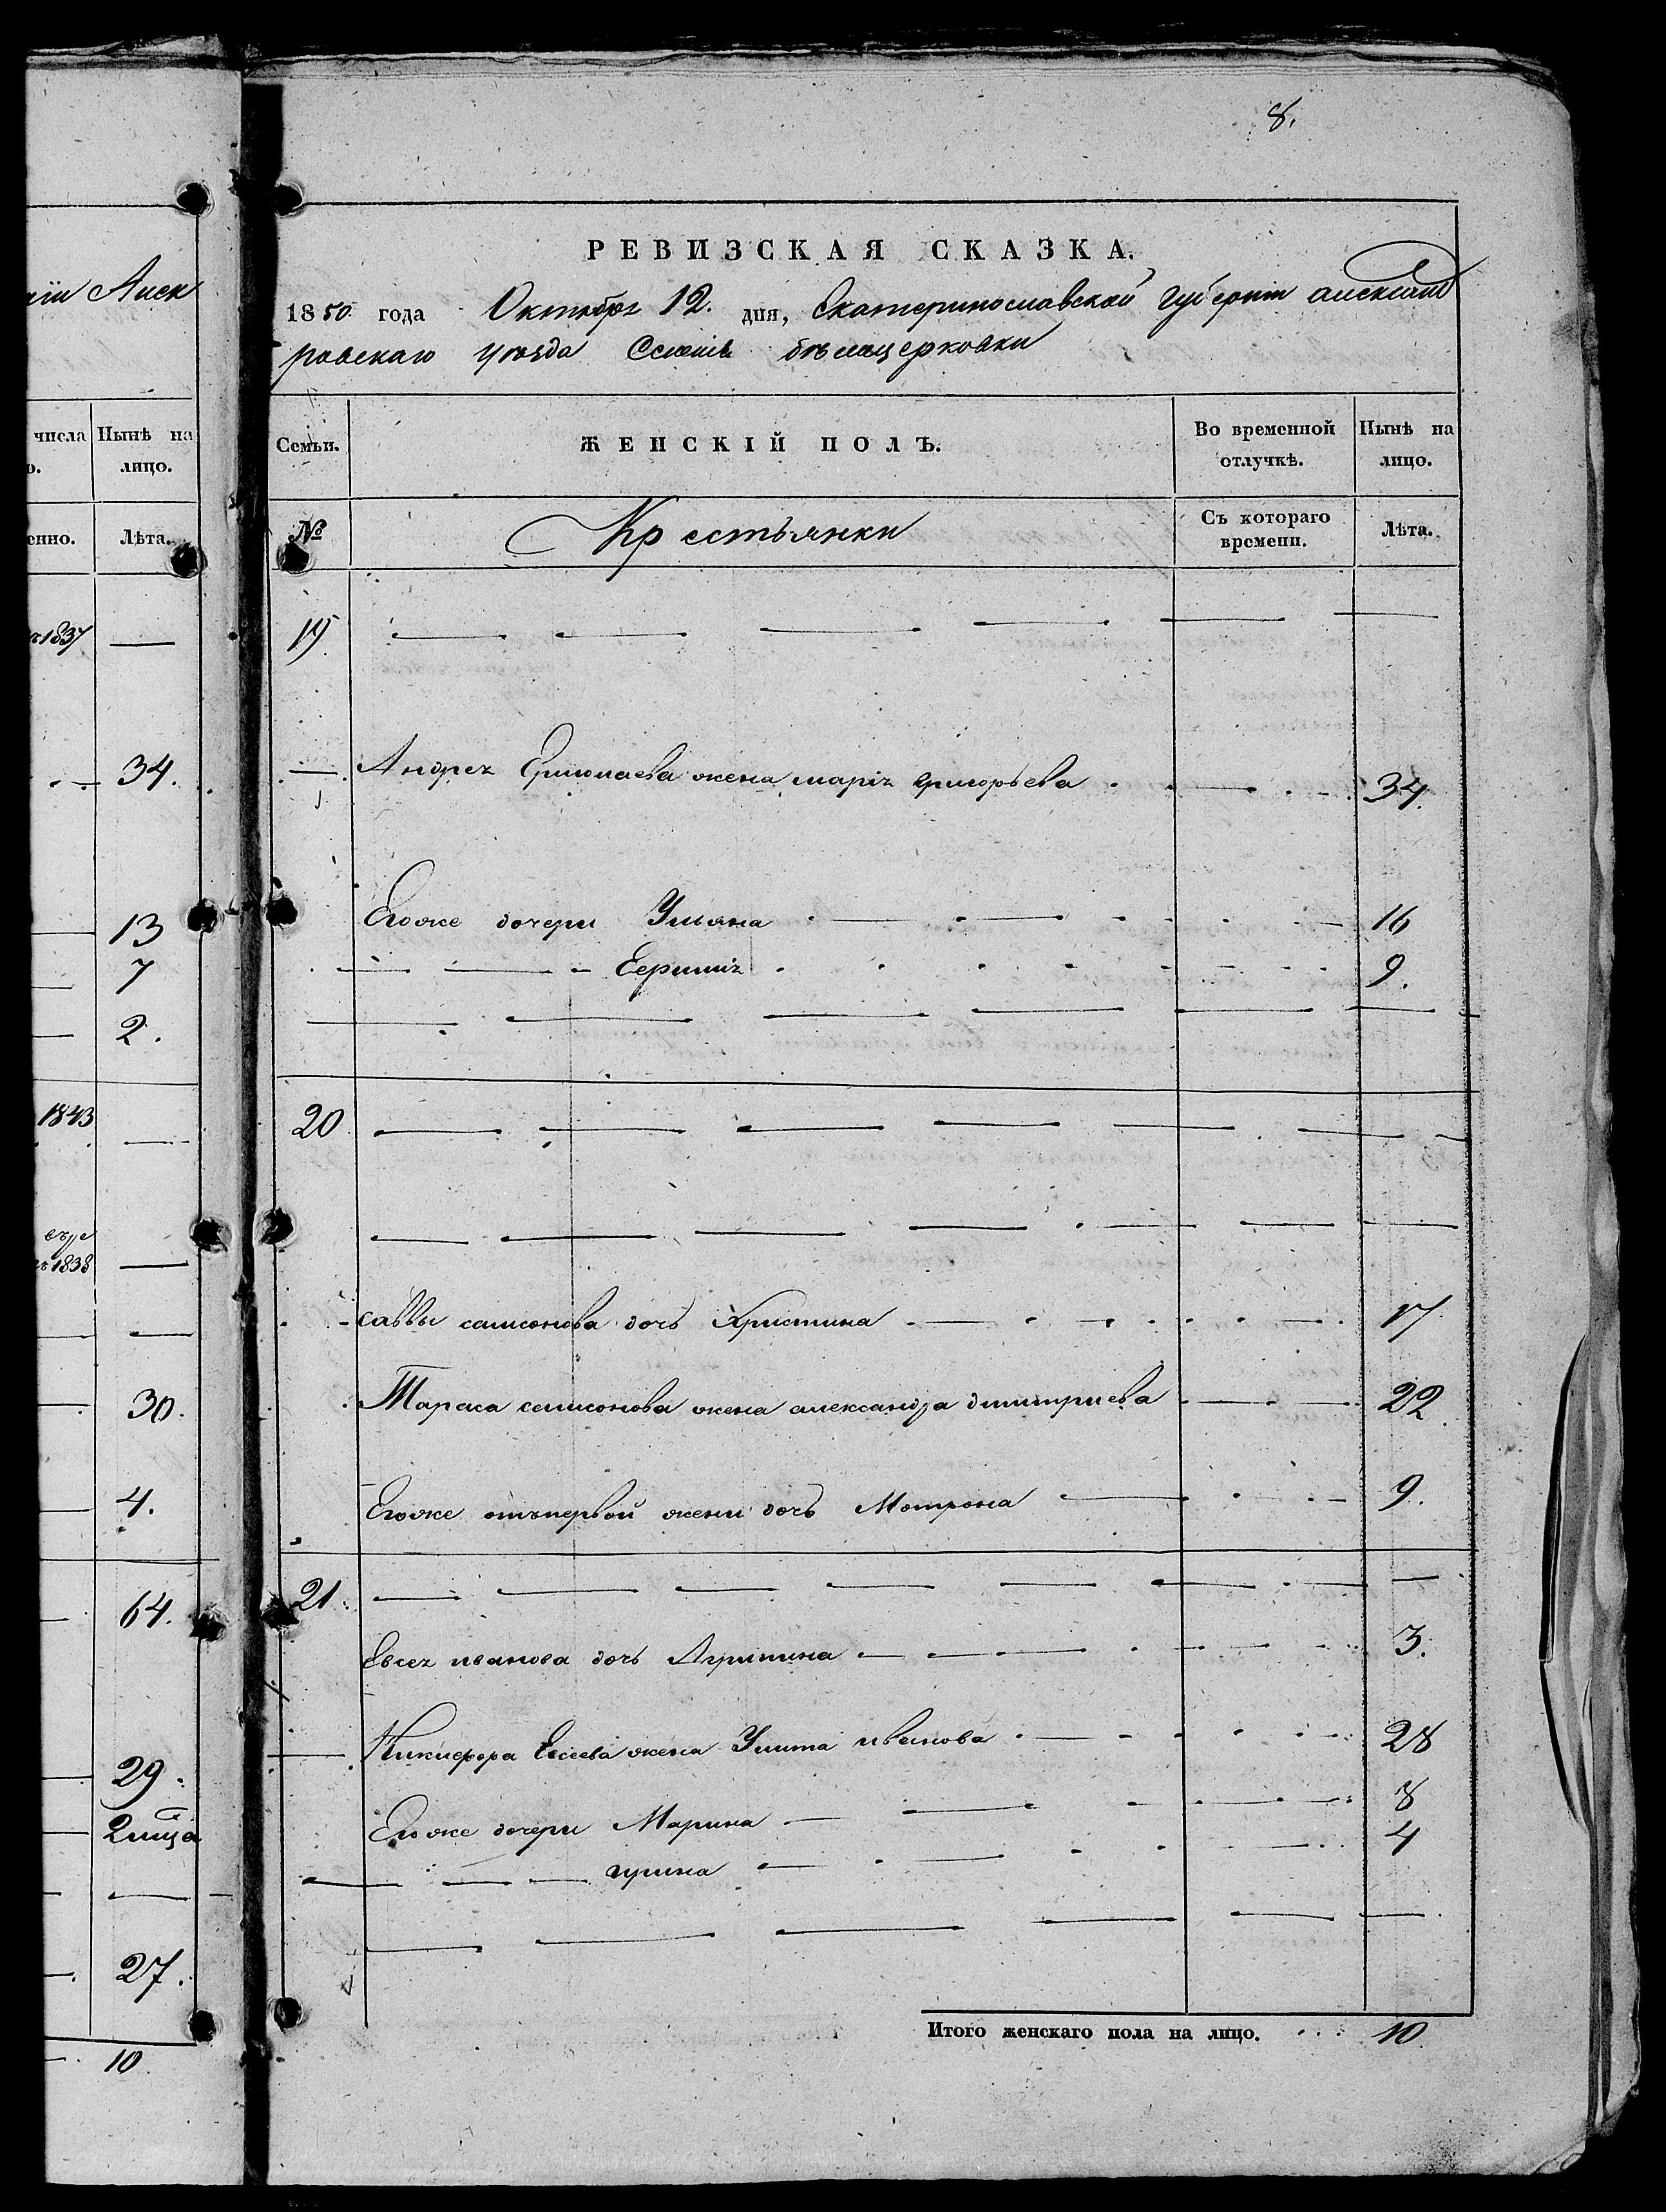 8.
РЕВИЗСКАЯ СКАЗКА.
1850 года Октября 12. дня, Екатеринославской губернiи александ
ровскаго уѣзда Селенiя бѣлацерковки
Семьи.
ЖЕНСКIЙ ПОЛЪ.
Во временной отлучкѣ.
Нынѣ на лицо.
№
Крестьянки
Съ котораго времени.
Лѣта.
19
Андрея жена марiя григорьева 34.
Егоже дочери Ульяна 16
9.
20
саввы самсонова дочь Христина 17
Тараса самсонова жена александра дмитриева 22.
Егоже отъпервой жени дочь Мотрона 9.
21.
Евсея иванова дочь Агрипина 3.
Никифора Евсеева жена Улита иванова 28
Егоже дочери Марина 8
ирина 4
Итого женскаго пола на лицо. 10.
нiи Алек
числа
о.
Нынѣ на лицо.
енно.
Лѣта.
1837
34.
13
7
2.
1843
1838
30.
4.
64.
29.
27.
10